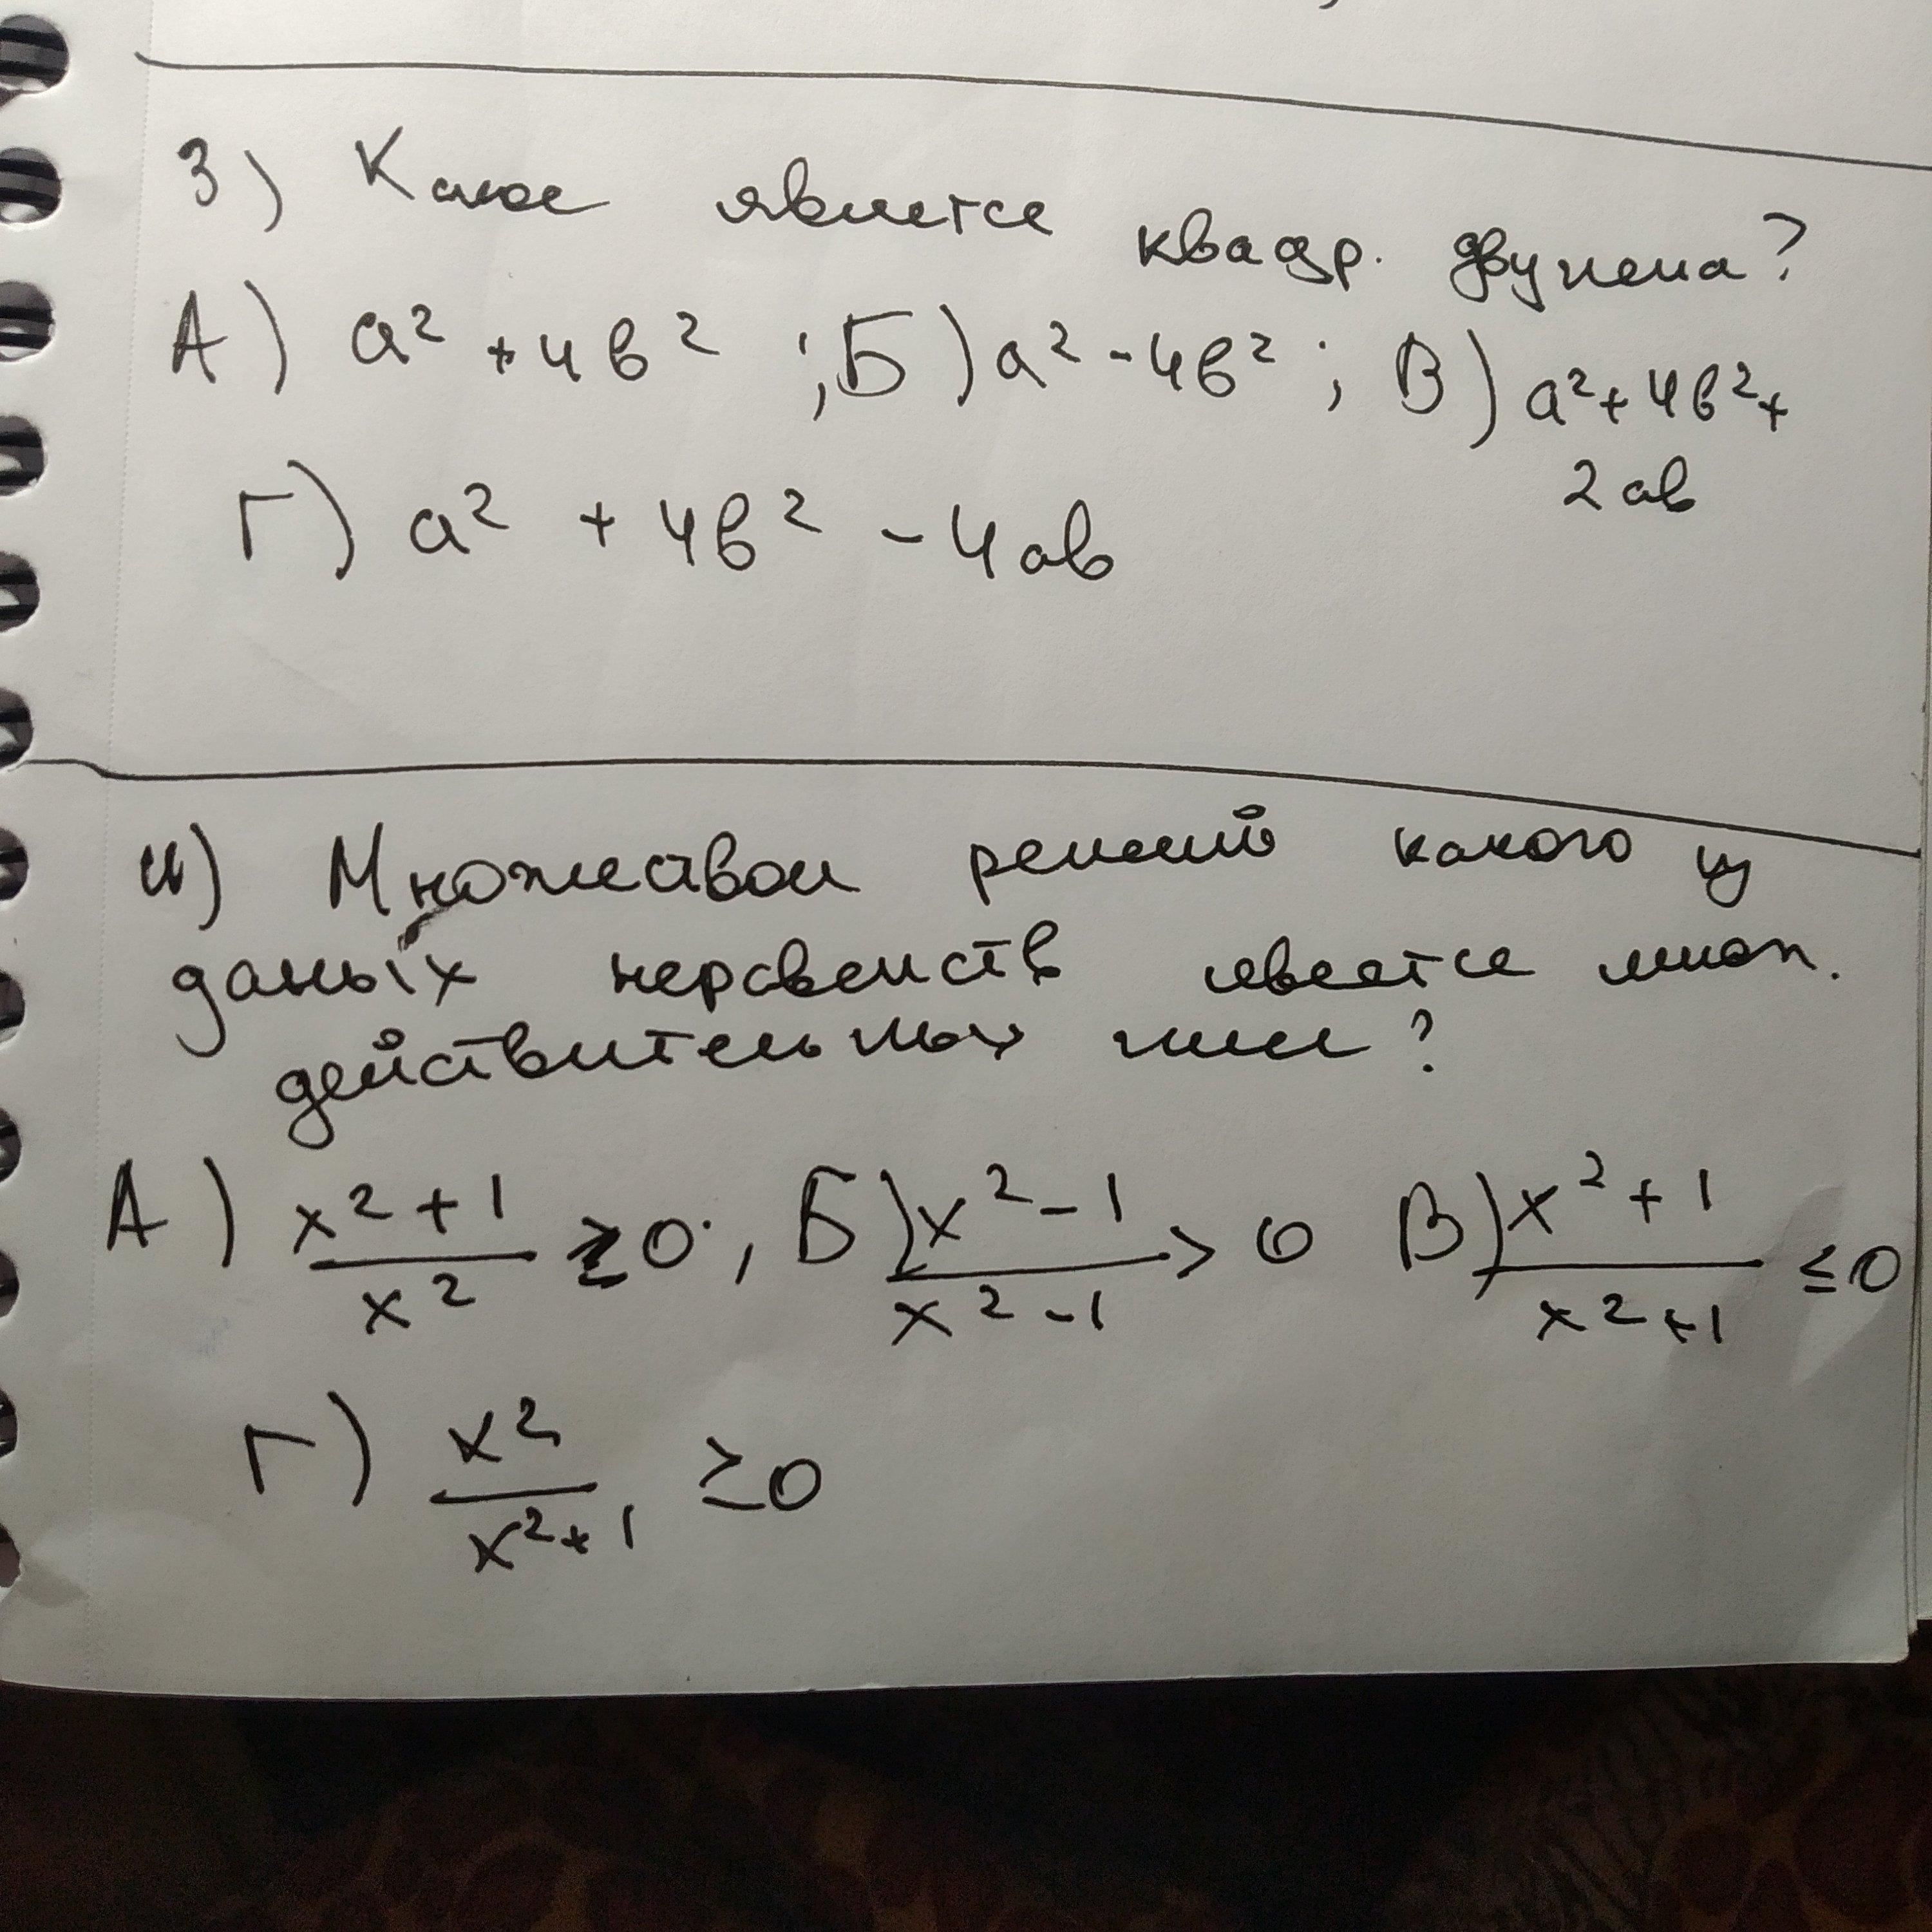 3) Какое является квадр. двучлена?
А) a² + 4b² ; Б) a² - 4b² ; В) a² + 4b² +
2ab
Г) a² + 4b² - 4ab
4) Множеством решений какого из
даных неравенств явеется множ.
действительных чисел?
А) (x² + 1)/x² ≥ 0 ; Б) (x² - 1)/(x² - 1) > 0 В) (x² + 1)/(x² + 1) ≤ 0
Г) x²/(x² + 1) ≥ 0